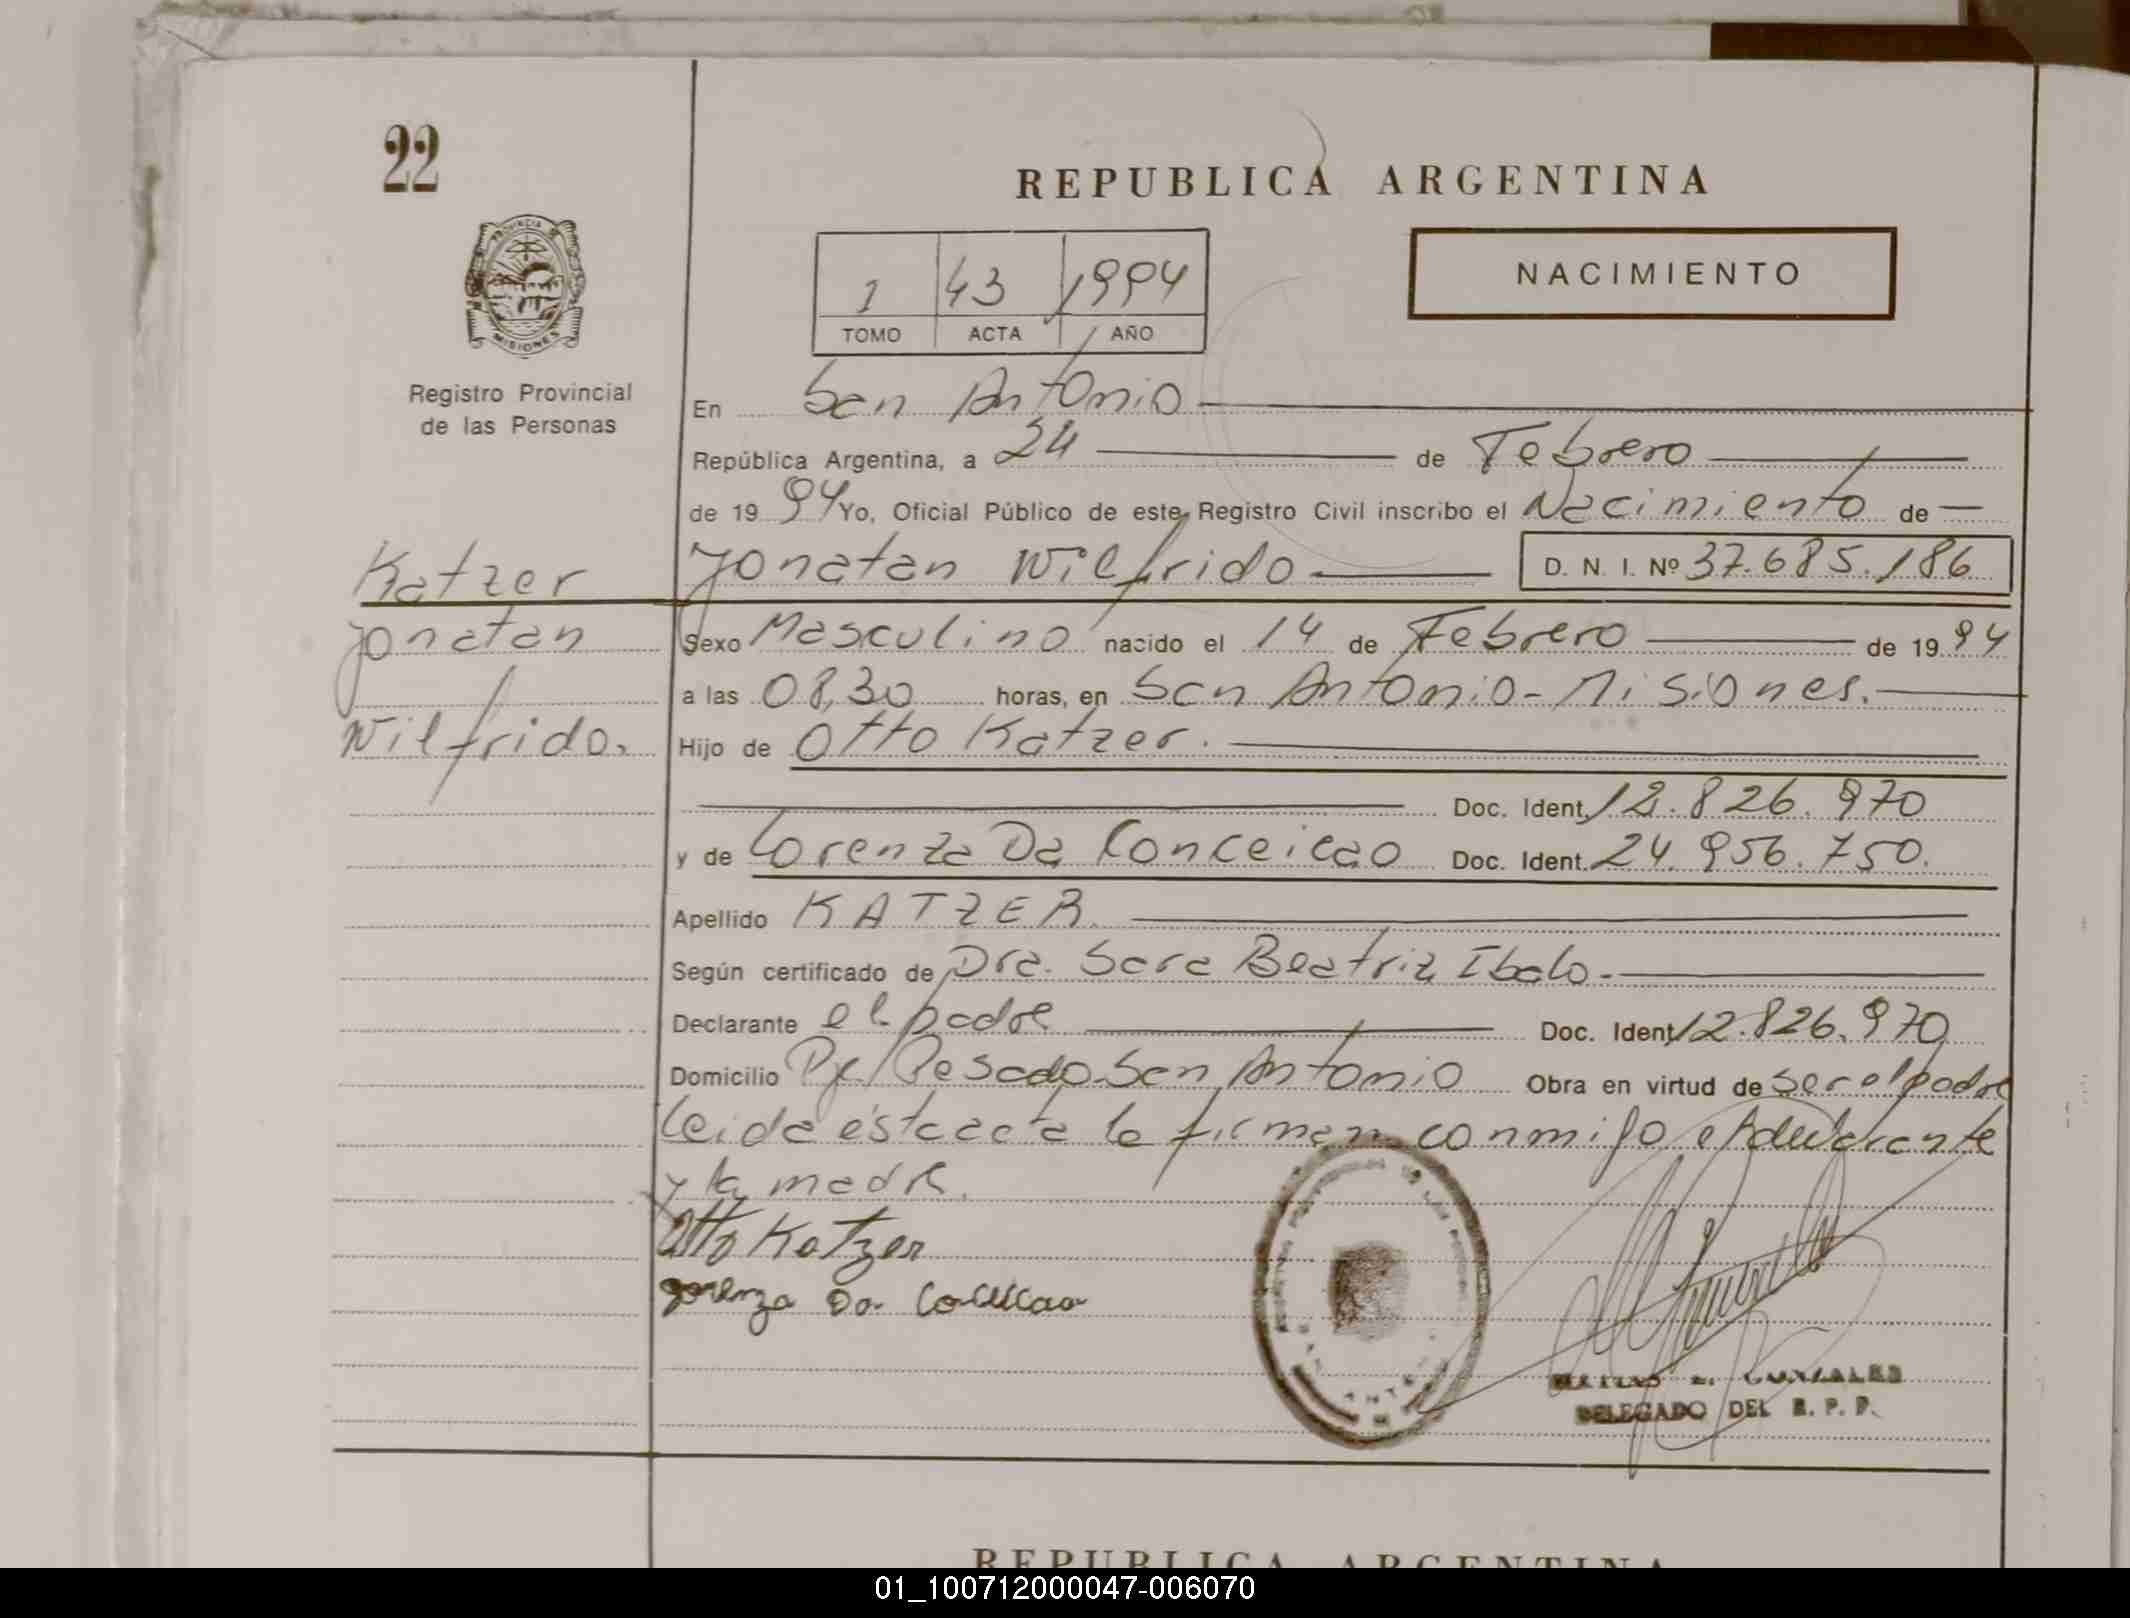 22
REPUBLICA ARGENTINA
PROVINCIA DE
MISIONES
1 43 1994
TOMO ACTA AÑO
NACIMIENTO
Registro Provincial
de las Personas
En San Antonio
República Argentina, a 24 de Febrero
de 1994 Yo, Oficial Público de este Registro Civil inscribo el Nacimiento de
Jonatan Wilfrido D. N. I. Nº 37.685.186
Katzer
Jonatan
Wilfrido.
Sexo Masculino nacido el 14 de Febrero de 1994
a las 08,30 horas, en San Antonio - Misiones.
Hijo de Otto Katzer.
Doc. Ident. 12.826.970
y de Lorenza Da Conceicao Doc. Ident. 24.956.750.
Apellido KATZER.
Según certificado de Dra. Sara Beatriz Ibalo.
Declarante el padre Doc. Ident. 12.826.970
Domicilio Pje. Pesado San Antonio Obra en virtud de ser el padre
Leida ésta acta la firman conmigo el declarante
y la madre.
Otto Katzer
Lorenza Da
GONZALES
DELEGADO DEL R. P. P.
REPUBLICA ARGENTINA
01_100712000047-006070